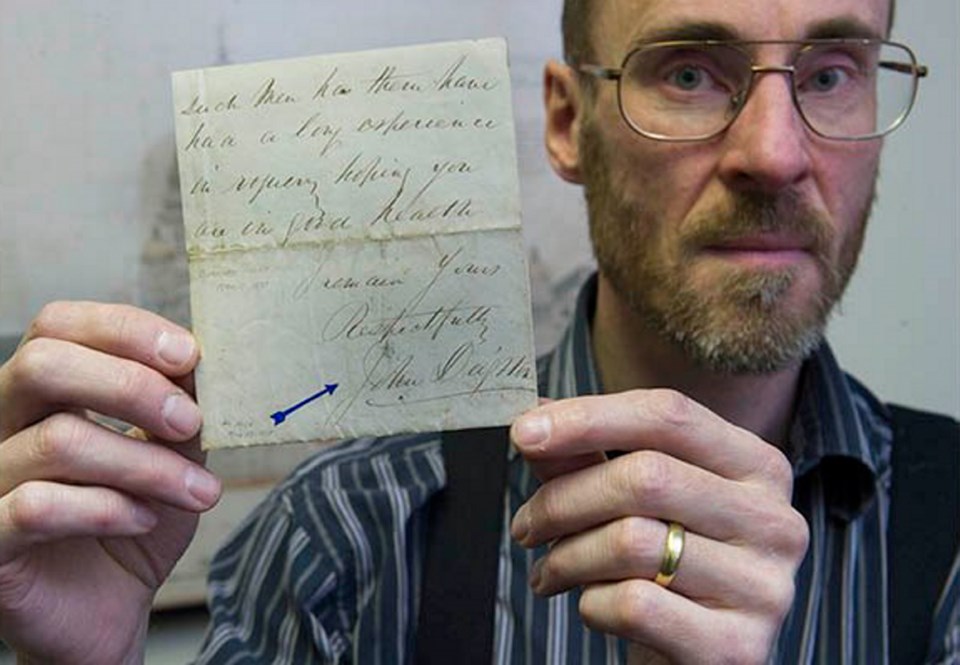 Such Men has them have
had a long experience
in roguery hoping you
are in good health
I remain Yours
Respectfully
John